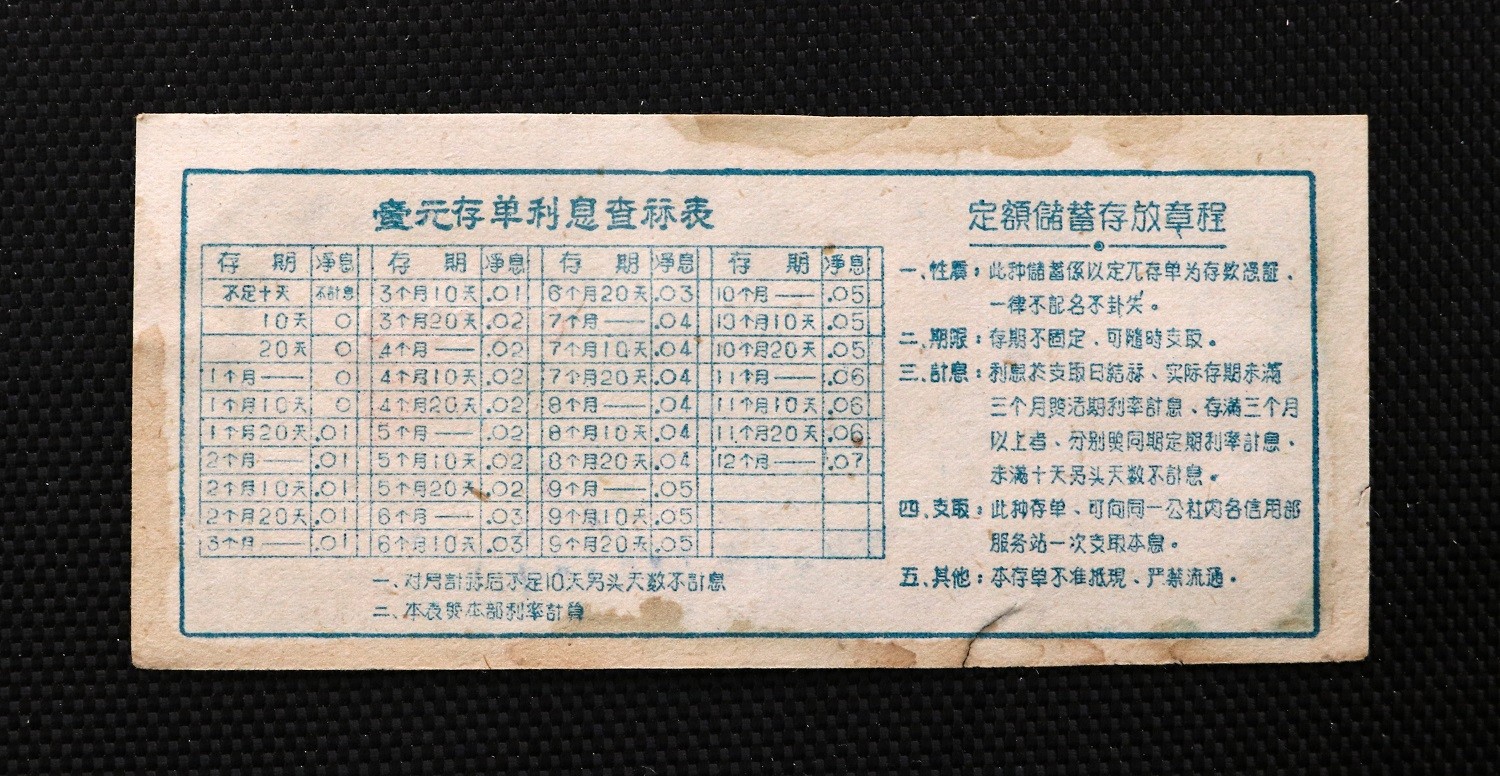 壹元存单利息查祘表
存 期 净息 存 期 净息 存 期 净息 存 期 净息
不足十天 不計息 3个月10天 .01 6个月20天 .03 10个月—— .05
10天 0 3个月20天 .02 7个月—— .04 10个月10天 .05
20天 0 4个月—— .02 7个月10天 .04 10个月20天 .05
1个月—— 0 4个月10天 .02 7个月20天 .04 11个月—— .06
1个月10天 0 4个月20天 .02 8个月—— .04 11个月10天 .06
1个月20天 .01 5个月—— .02 8个月10天 .04 11个月20天 .06
2个月—— .01 5个月10天 .02 8个月20天 .04 12个月—— .07
2个月10天 .01 5个月20天 .02 9个月—— .05
2个月20天 .01 6个月—— .03 9个月10天 .05
3个月—— .01 6个月10天 .03 9个月20天 .05
一、对月計祘后不足10天另头天数不計息
二、本表照本部利率計算
定額儲蓄存放章程
一、性質：此种儲蓄係以定兀存单为存款憑証、
一律不記名不卦失。
二、期限：存期不固定、可隨時支取。
三、計息：利息於支取日結祘、实际存期未滿
三个月照活期利率計息、存滿三个月
以上者、分别照同期定期利率計息、
未滿十天另头天数不計息。
四、支取：此种存单、可向同一公社內各信用部
服务站一次支取本息。
五、其他：本存单不准抵現、严禁流通。